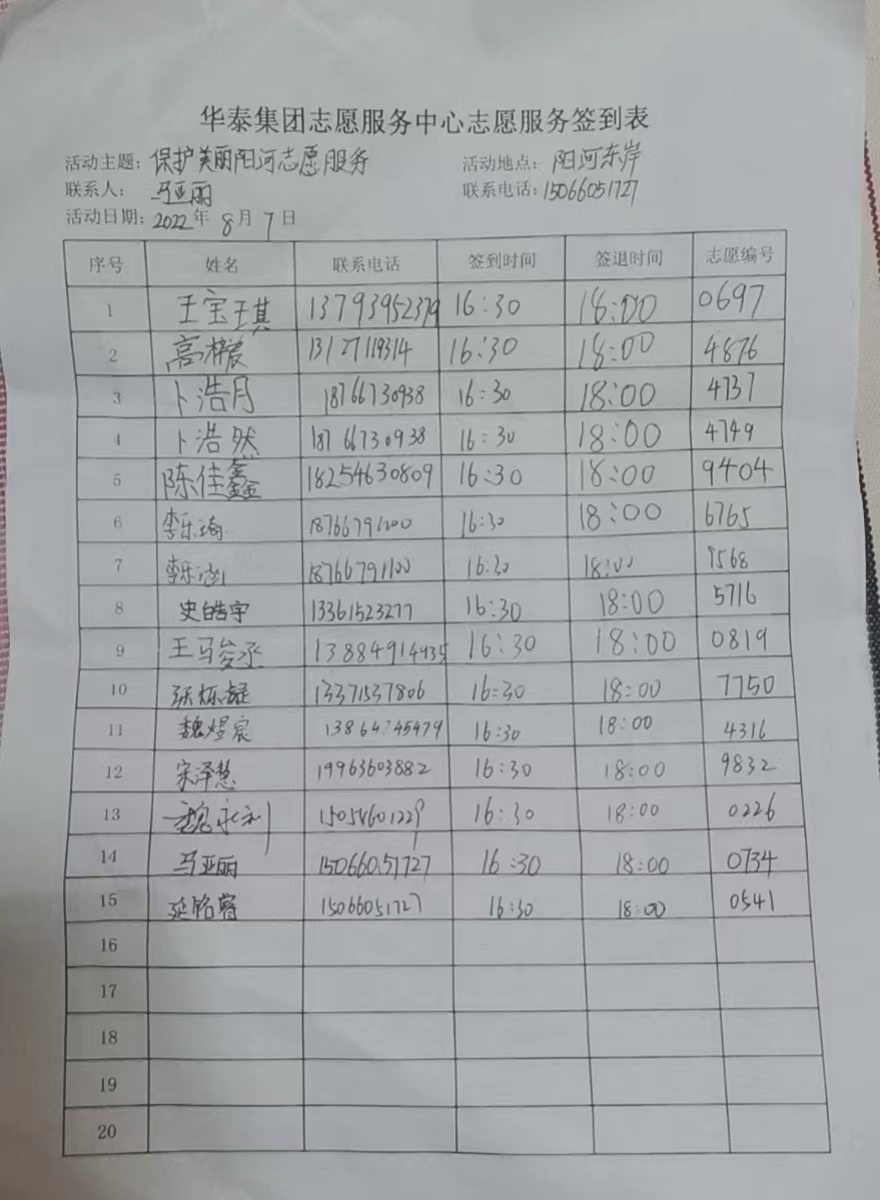 华泰集团志愿服务中心志愿服务签到表
活动主题：保护美丽阳河志愿服务 活动地点：阳河东岸
联系人：马亚丽 联系电话：15066051727
活动日期：2022年8月7日
序号 姓名 联系电话 签到时间 签退时间 志愿编号
1 王宝琪 13793952379 16:30 18:00 0697
2 高 13127119314 16:30 18:00 4876
3 卜浩月 18766730938 16:30 18:00 4737
4 卜浩然 18766730938 16:30 18:00 4749
5 陈佳鑫 18254630809 16:30 18:00 9404
6 李乐琦 18766791100 16:30 18:00 6765
7 李乐涵 18766791100 16:30 18:00
8 史皓宇 13361523277 16:30 18:00 5716
9 王骏丞 13884914935 16:30 18:00 0819
10 张 13371537806 16:30 18:00 7750
11 魏煜宸 16:30 18:00 4316
12 宋泽慧 19963603882 16:30 18:00 9832
13 魏永利 16:30 18:00 0226
14 马亚丽 15066051727 16:30 18:00 0734
15 延铭睿 15066051727 16:30 18:00 0541
16
17
18
19
20